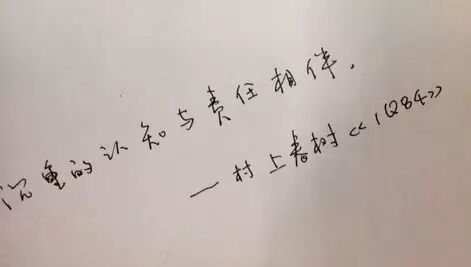 沉重的认知与责任相伴.
一村上春树《1Q84》